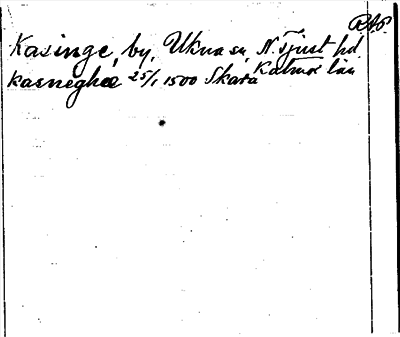 RAP
Kasinge, by, Ukna sn, N. Tjust hd
Kalmar län
kasneghæ 25/1 1500 Skara